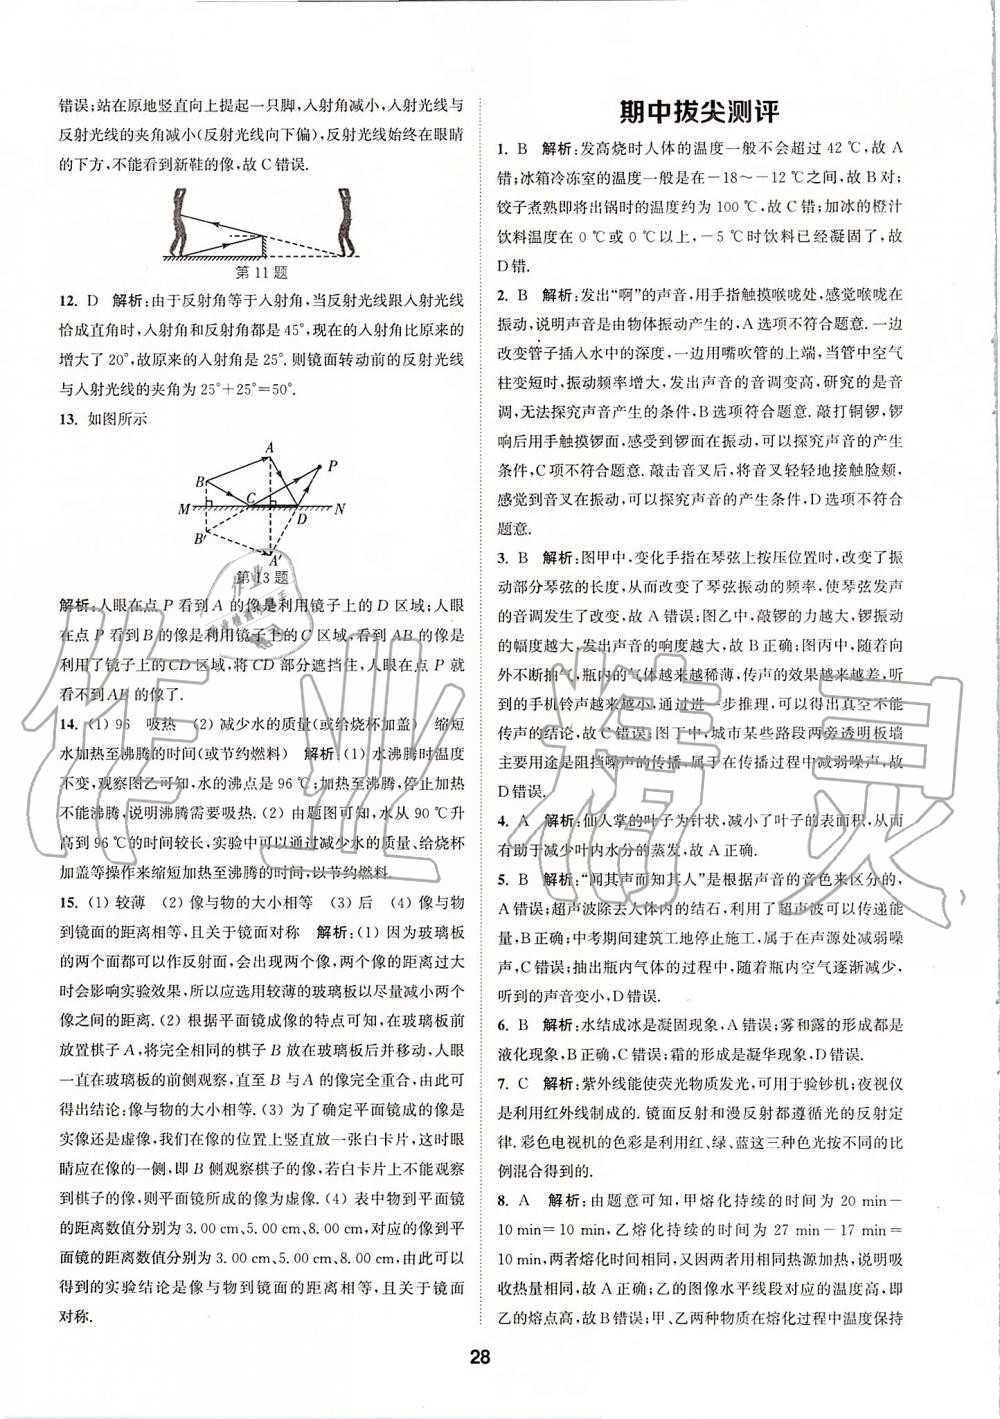 错误;站在原地竖直向上提起一只脚,入射角减小,入射光线与
反射光线的夹角减小(反射光线向下偏),反射光线始终在眼睛
的下方,不能看到新鞋的像,故C错误.
第11题
12. D 解析:由于反射角等于入射角,当反射光线跟入射光线
恰成直角时,入射角和反射角都是45°,现在的入射角比原来的
增大了20°,故原来的入射角是25°.则镜面转动前的反射光线
与入射光线的夹角为25°+25°=50°.
13. 如图所示
A
P
B
C
M
N
D
B′
A′
第13题
解析:人眼在点P看到A的像是利用镜子上的D区域;人眼
在点P看到B的像是利用镜子上的C区域,看到AB的像是
利用了镜子上的CD区域,将CD部分遮挡住,人眼在点P就
看不到AB的像了.
14. (1) 96 吸热 (2) 减少水的质量(或给烧杯加盖) 缩短
水加热至沸腾的时间(或节约燃料) 解析:(1) 水沸腾时温度
不变,观察图乙可知,水的沸点是96℃;加热至沸腾,停止加热
不能沸腾,说明沸腾需要吸热.(2) 由题图可知,水从90℃升
高到96℃的时间较长,实验中可以通过减少水的质量、给烧杯
加盖等操作来缩短加热至沸腾的时间,以节约燃料.
15. (1) 较薄 (2) 像与物的大小相等 (3) 后 (4) 像与物
到镜面的距离相等,且关于镜面对称 解析:(1) 因为玻璃板
的两个面都可以作反射面,会出现两个像,两个像的距离过大
时会影响实验效果,所以应选用较薄的玻璃板以尽量减小两个
像之间的距离.(2) 根据平面镜成像的特点可知,在玻璃板前
放置棋子A,将完全相同的棋子B放在玻璃板后并移动,人眼
一直在玻璃板的前侧观察,直至B与A的像完全重合,由此可
得出结论:像与物的大小相等.(3) 为了确定平面镜成的像是
实像还是虚像,我们在像的位置上竖直放一张白卡片,这时眼
睛应在像的一侧,即B侧观察棋子的像,若白卡片上不能观察
到棋子的像,则平面镜所成的像为虚像.(4) 表中物到平面镜
的距离数值分别为3.00 cm、5.00 cm、8.00 cm,对应的像到平
面镜的距离数值分别为3.00 cm、5.00 cm、8.00 cm,由此可以
得到的实验结论是像与物到镜面的距离相等,且关于镜面
对称.
期中拔尖测评
1. B 解析:发高烧时人体的温度一般不会超过42℃,故A
错;冰箱冷冻室的温度一般是在-18～-12℃之间,故B对;
饺子煮熟即将出锅时的温度约为100℃,故C错;加冰的橙汁
饮料温度在0℃或0℃以上,-5℃时饮料已经凝固了,故
D错.
2. B 解析:发出“啊”的声音,用手指触摸喉咙处,感觉喉咙在
振动,说明声音是由物体振动产生的,A选项不符合题意.一边
改变管子插入水中的深度,一边用嘴吹管的上端,当管中空气
柱变短时,振动频率增大,发出声音的音调变高,研究的是音
调,无法探究声音产生的条件,B选项符合题意.敲打铜锣,锣
响后用手触摸锣面,感受到锣面在振动,可以探究声音的产生
条件,C项不符合题意.敲击音叉后,将音叉轻轻地接触脸颊,
感觉到音叉在振动,可以探究声音的产生条件,D选项不符合
题意.
3. B 解析:图甲中,变化手指在琴弦上按压位置时,改变了振
动部分琴弦的长度,从而改变了琴弦振动的频率,使琴弦发声
的音调发生了改变,故A错误;图乙中,敲锣的力越大,锣振动
的幅度越大,发出声音的响度越大,故B正确;图丙中,随着向
外不断抽气,瓶内的气体越来越稀薄,传声的效果越来越差,听
到的手机铃声越来越小,通过进一步推理,可以得出真空不能
传声的结论,故C错误;图丁中,城市某些路段两旁透明板墙
主要用途是阻挡噪声的传播,属于在传播过程中减弱噪声,故
D错误.
4. A 解析:仙人掌的叶子为针状,减小了叶子的表面积,从而
有助于减少叶内水分的蒸发,故A正确.
5. B 解析:“闻其声而知其人”是根据声音的音色来区分的,
A错误;超声波除去人体内的结石,利用了超声波可以传递能
量,B正确;中考期间建筑工地停止施工,属于在声源处减弱噪
声,C错误;抽出瓶内气体的过程中,随着瓶内空气逐渐减少,
听到的声音变小,D错误.
6. B 解析:水结成冰是凝固现象,A错误;雾和露的形成都是
液化现象,B正确,C错误;霜的形成是凝华现象,D错误.
7. C 解析:紫外线能使荧光物质发光,可用于验钞机;夜视仪
是利用红外线制成的.镜面反射和漫反射都遵循光的反射定
律.彩色电视机的色彩是利用红、绿、蓝这三种色光按不同的比
例混合得到的.
8. A 解析:由题意可知,甲熔化持续的时间为20 min-
10 min=10 min,乙熔化持续的时间为27 min-17 min=
10 min,两者熔化时间相同,又因两者用相同热源加热,说明吸
收热量相同,故A正确;乙的图像水平线段对应的温度高,即
乙的熔点高,故B错误;甲、乙两种物质在熔化过程中温度保持
28
作业精灵